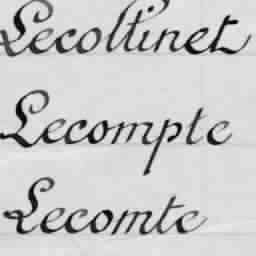 Lecoltinet
Lecompte
Lecomte